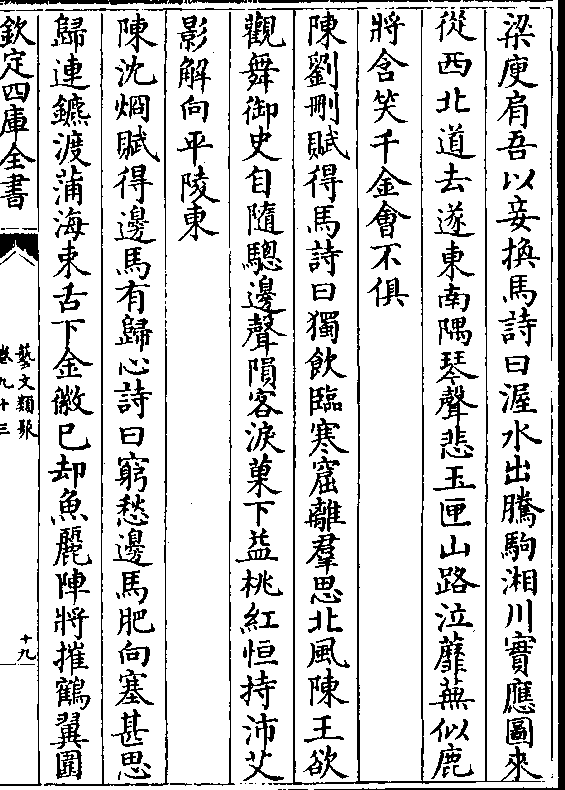 梁庾肩吾以妾換馬詩曰渥水出騰駒湘川實應圖來
從西北道去逐東南隅琴聲悲玉匣山路泣蘼蕪似鹿
將含笑千金會不俱
陳劉刪賦得馬詩曰獨飲臨寒窟離羣思北風陳王欲
觀舞御史自隨驄邊聲隕客淚菓下益桃紅恒持沛艾
影解向平陵東
陳沈烱賦得邊馬有歸心詩曰窮愁邊馬肥向塞甚思
歸連鑣渡蒲海束舌下金徽巳却魚麗陣將摧鶴翼圍
欽定四庫全書
藝文類聚
卷九十三
十九